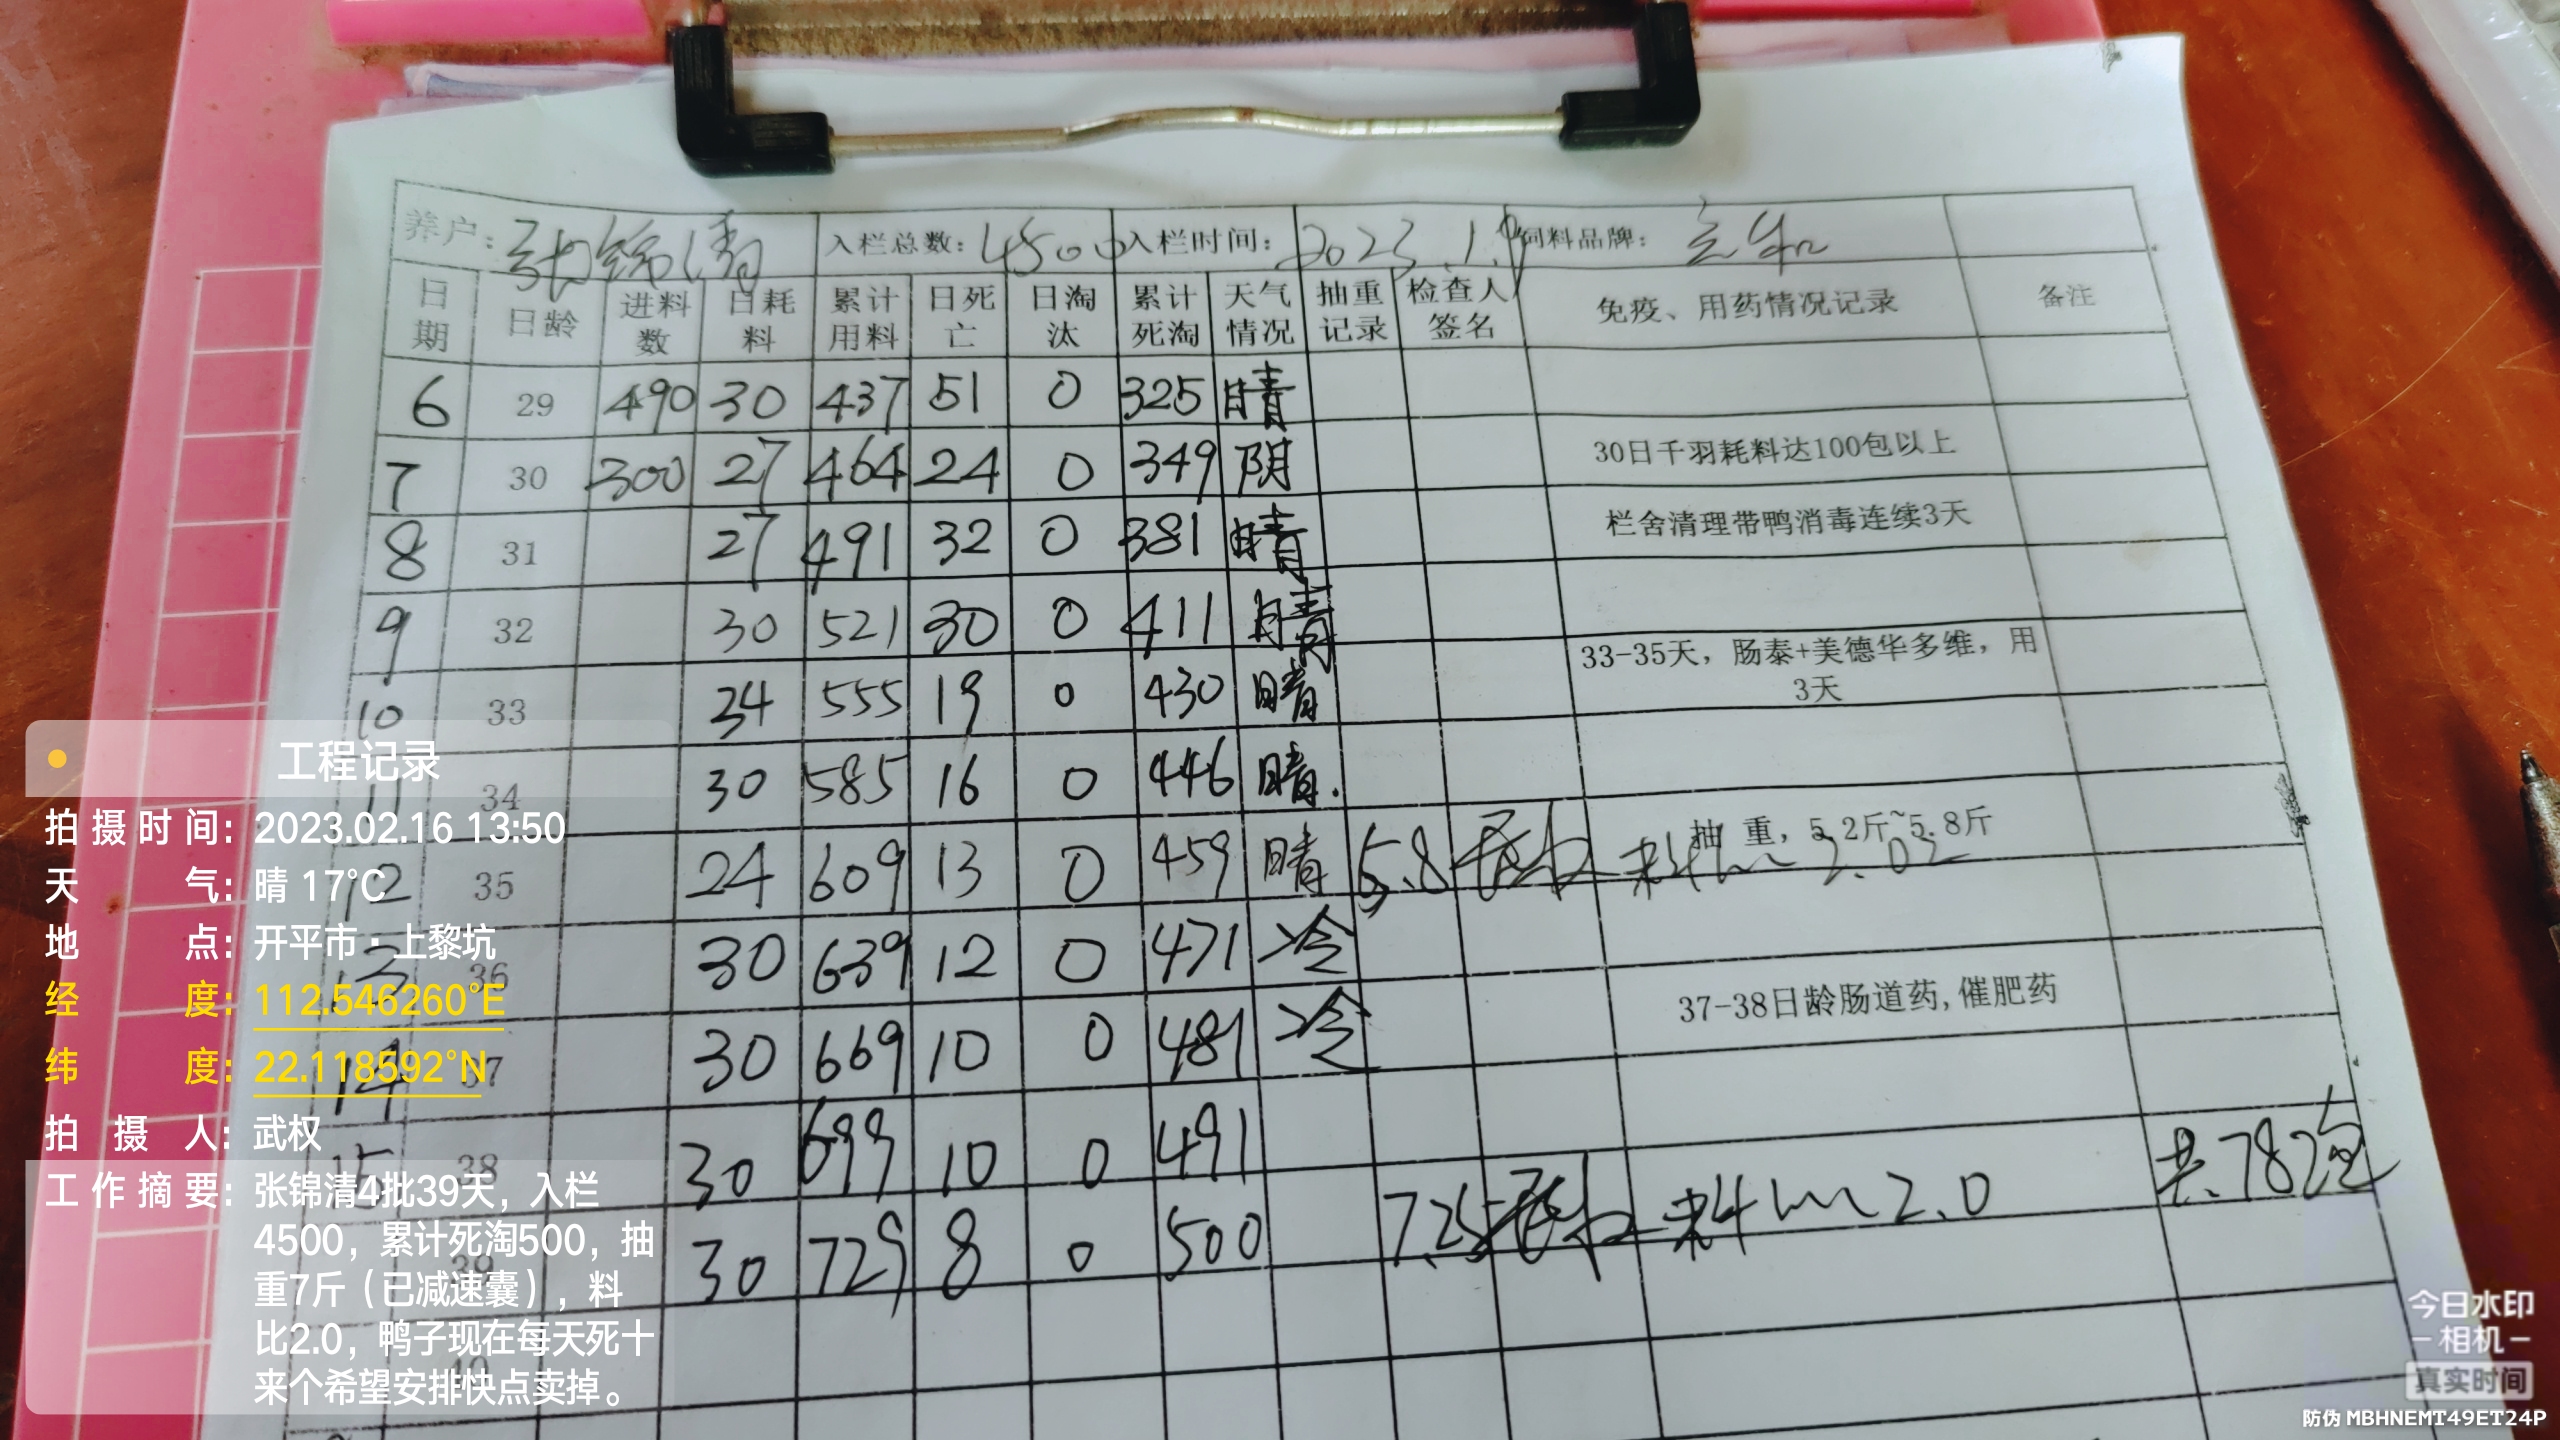 养户: 张锦清 入栏总数: 4500 入栏时间: 2023.1.9 饲料品牌:
日期 日龄 进料数 日耗料 累计用料 日死亡 日淘汰 累计死淘 天气情况 抽重记录 检查人签名 免疫、用药情况记录 备注
6 29 490 30 437 51 0 325 晴
7 30 300 27 464 24 0 349 阴 30日千羽耗料达100包以上
8 31 27 491 32 0 381 晴 栏舍清理带鸭消毒连续3天
9 32 30 521 30 0 411 晴
10 33 34 555 19 0 430 晴 33-35天，肠泰+美德华多维，用3天
11 34 30 585 16 0 446 晴.
12 35 24 609 13 0 459 晴 5.8 抽 重，5.2斤~5.8斤 料比 2.02
13 36 30 639 12 0 471 冷
14 37 30 669 10 0 481 冷 37-38日龄肠道药,催肥药
15 38 30 699 10 0 491
39 30 729 8 0 500 7.25 料比 2.0 共782包
40
工程记录
拍摄时间: 2023.02.16 13:50
天气: 晴 17℃
地点: 开平市·上黎坑
经度: 112.546260°E
纬度: 22.118592°N
拍摄人: 武权
工作摘要: 张锦清4批39天，入栏
4500，累计死淘500，抽
重7斤（已减速囊），料
比2.0，鸭子现在每天死十
来个希望安排快点卖掉。
今日水印
相机
真实时间
防伪 MBHNEMT49ET24P